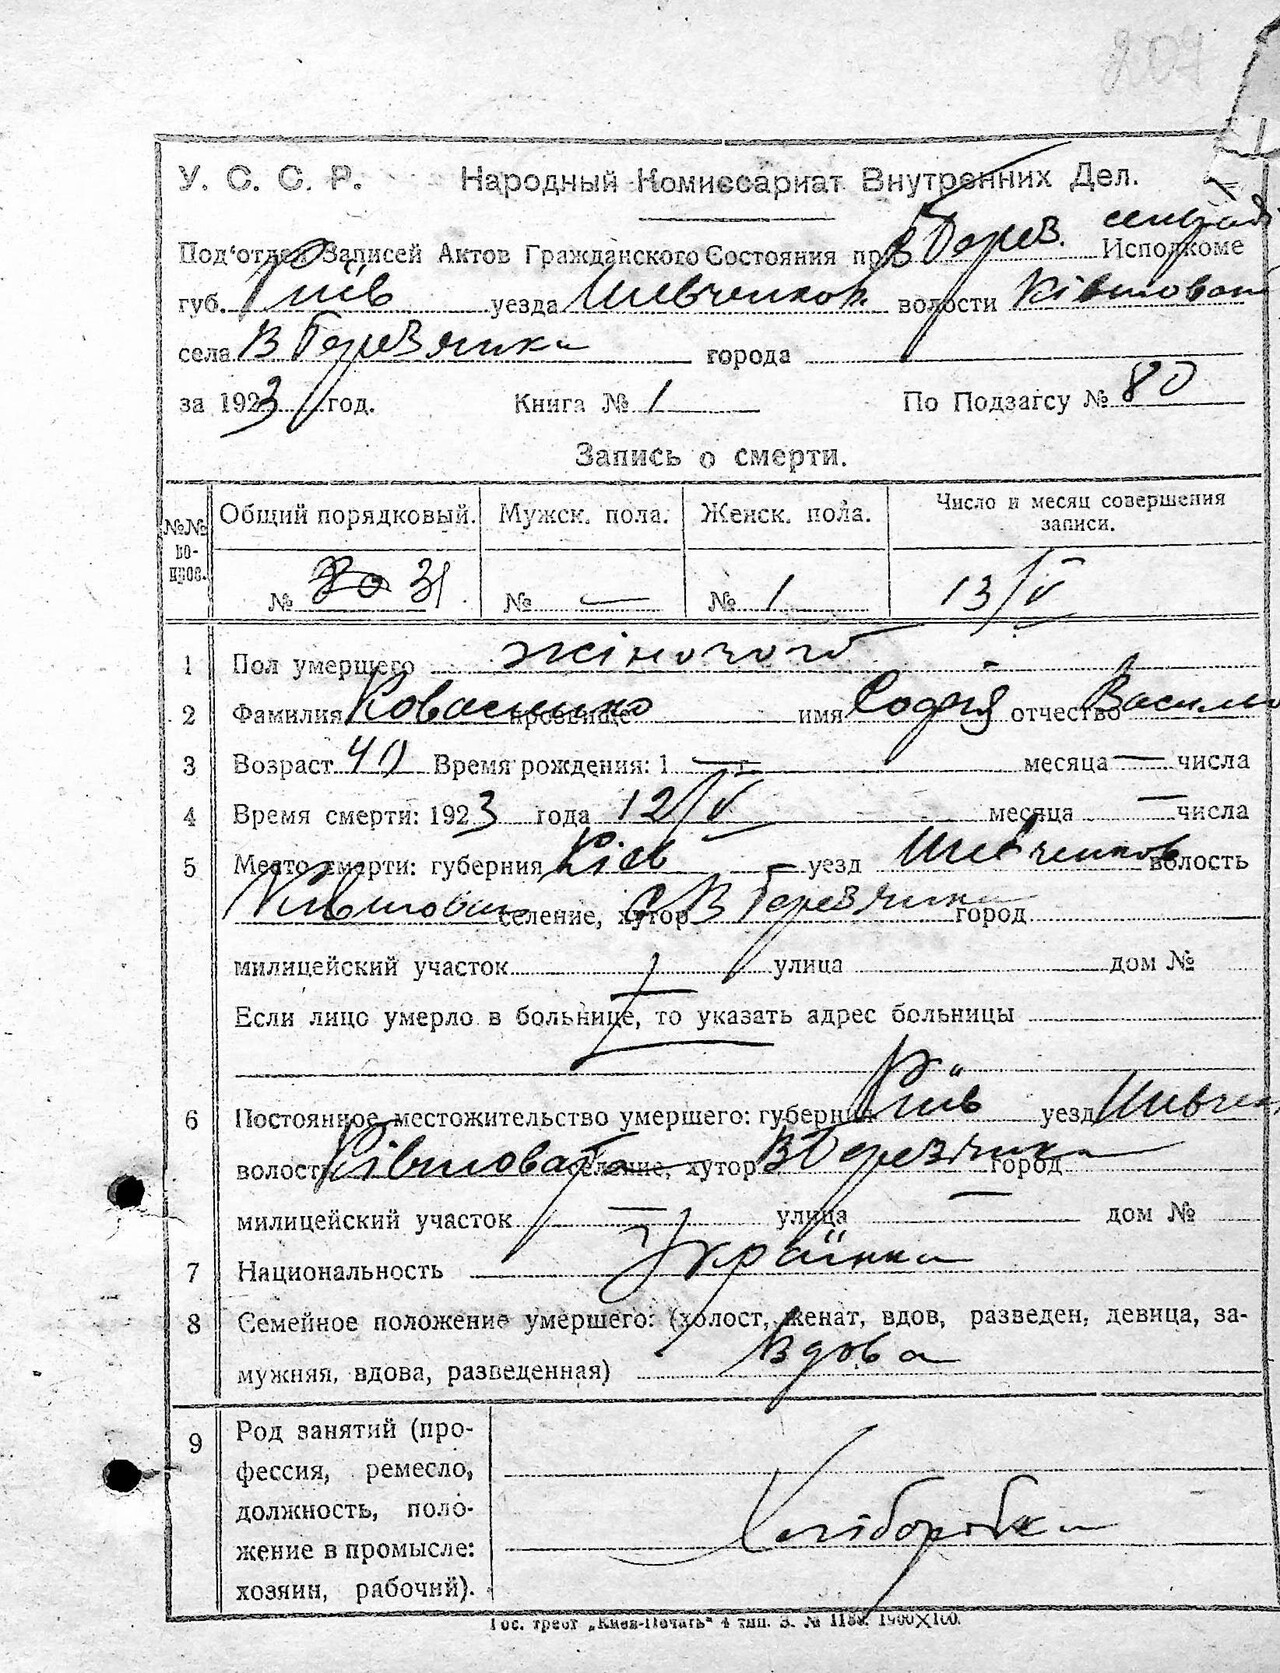 207
У. С. С. Р. Народный Комиссариат Внутренних Дел.
Под'отдел Записей Актов Гражданского Состояния при В Берез. Исполкоме
губ. Київ уезда Шевченков волости Ківшовата
села В Березянка города
за 1923 год. Книга № 1 По Подзагсу № 80
Запись о смерти.
№№ вопрос. Общий порядковый. Мужск. пола. Женск. пола. Число и месяц совершения записи.
№ 31 № — № 1 13/V
1 Пол умершего жіночого
2 Фамилия прозвище имя Софія отчество Васильо
3 Возраст 40 Время рождения: 1 — г месяца — числа
4 Время смерти: 1923 года 12/V месяца — числа
5 Место смерти: губерния Київ уезд Шевченков волость
Ківшоват селение, хутор с В Березянка город
милицейский участок улица дом №
Если лицо умерло в больнице, то указать адрес больницы
6 Постоянное местожительство умершего: губерния Київ уезд Шевчен
волость Ківшовата селение, хутор В Березянка город
милицейский участок — улица — дом №
7 Национальность Українка
8 Семейное положение умершего: (холост, женат, вдов, разведен, девица, за-
мужняя, вдова, разведенная) Вдова
9 Род занятий (про-
фессия, ремесло,
должность, поло-
жение в промысле:
хозяин, рабочий).
Хліборобка
Гос. трест „Киев-Печать" 4 тип. З. № 1100×100.